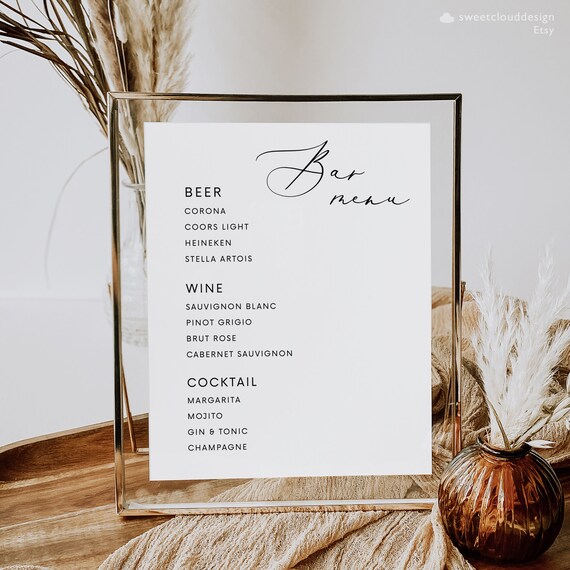 sweetclouddesign
Etsy
Bar
menu
BEER
CORONA
COORS LIGHT
HEINEKEN
STELLA ARTOIS
WINE
SAUVIGNON BLANC
PINOT GRIGIO
BRUT ROSE
CABERNET SAUVIGNON
COCKTAIL
MARGARITA
MOJITO
GIN & TONIC
CHAMPAGNE